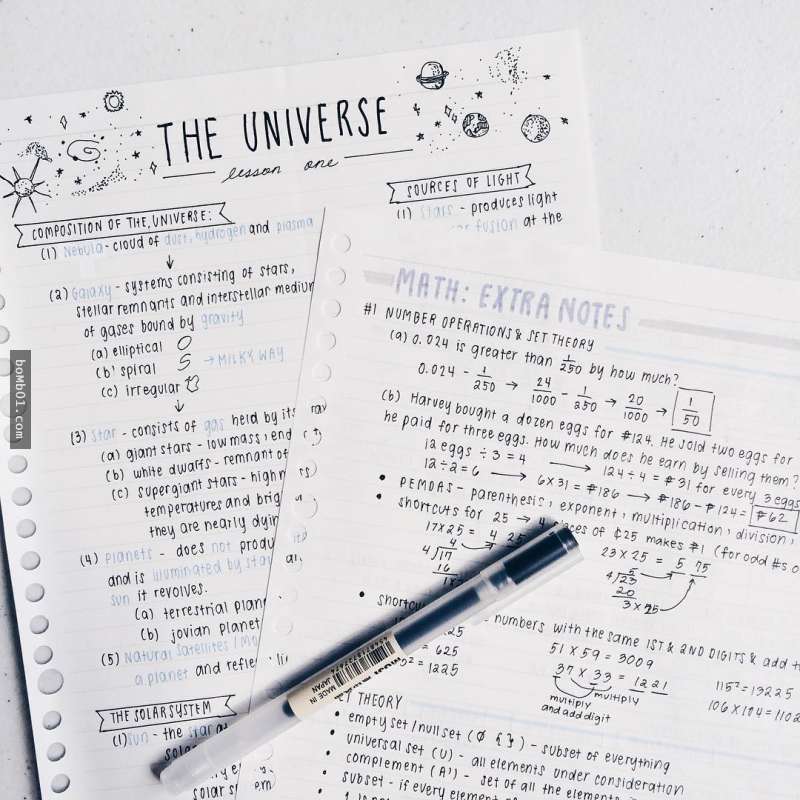 THE UNIVERSE
lesson one
COMPOSITION OF THE UNIVERSE:
(1) Nebula - cloud of dust, hydrogen and plasma
(2) Galaxy - systems consisting of stars,
stellar remnants and interstellar medium
of gases bound by gravity
(a) elliptical
(b) spiral → MILKY WAY
(c) irregular
(3) Star - consists of gas held by its
(a) giant stars - low mass; end
(b) white dwarfs - remnant of
(c) supergiant stars - high
temperatures and
they are nearly
(4) Planets - does not
and is illuminated by
sun it revolves.
(a) terrestrial
(b) jovian planet
(5) Natural Satellites /
a planet and
THE SOLAR SYSTEM
(1) Sun - the star
SOURCES OF LIGHT
(1) Stars - produces light
fusion at the
MATH: EXTRA NOTES
#1 NUMBER OPERATIONS & SET THEORY
(a) 0.024 is greater than 1/250 by how much?
0.024 - 1/250 → 24/1000 - 1/250 → 20/1000 → 1/50
(b) Harvey bought a dozen eggs for ₱124. He sold two eggs for
he paid for three eggs. How much does he earn by selling them?
12 eggs ÷ 3 = 4 → 124 ÷ 4 = ₱31 for every 3 eggs
12 ÷ 2 = 6 → 6 x 31 = ₱186 → ₱186 - ₱124 = ₱62
• PEMDAS - parenthesis, exponent, multiplication, division,
• shortcuts for 25 → 4 of ¢25 makes ₱1 (for odd #s
17 x 25 = 4 25
4
4√17
16
23 x 25 = 5 75
5
4√23
20
3 x 25
• numbers with the same 1ST & 2ND DIGITS & add
= 625
= 1225
51 x 59 = 3009
37 x 33 = 1221
multiply
and add digit
multiply
115² = 13225
106 x 104 =
SET THEORY
• empty set / null set (∅ { }) - subset of everything
• universal set (U) - all elements under consideration
• complement (A') - set of all the elements
• subset - if every element
MADE IN
JAPAN
bomb01.com